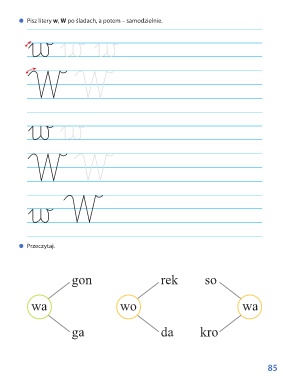 Pisz litery w, W po śladach, a potem – samodzielnie.
w w w
W W
w w
W W
w W
Przeczytaj.
gon rek so
wa wo wa
ga da kro
85